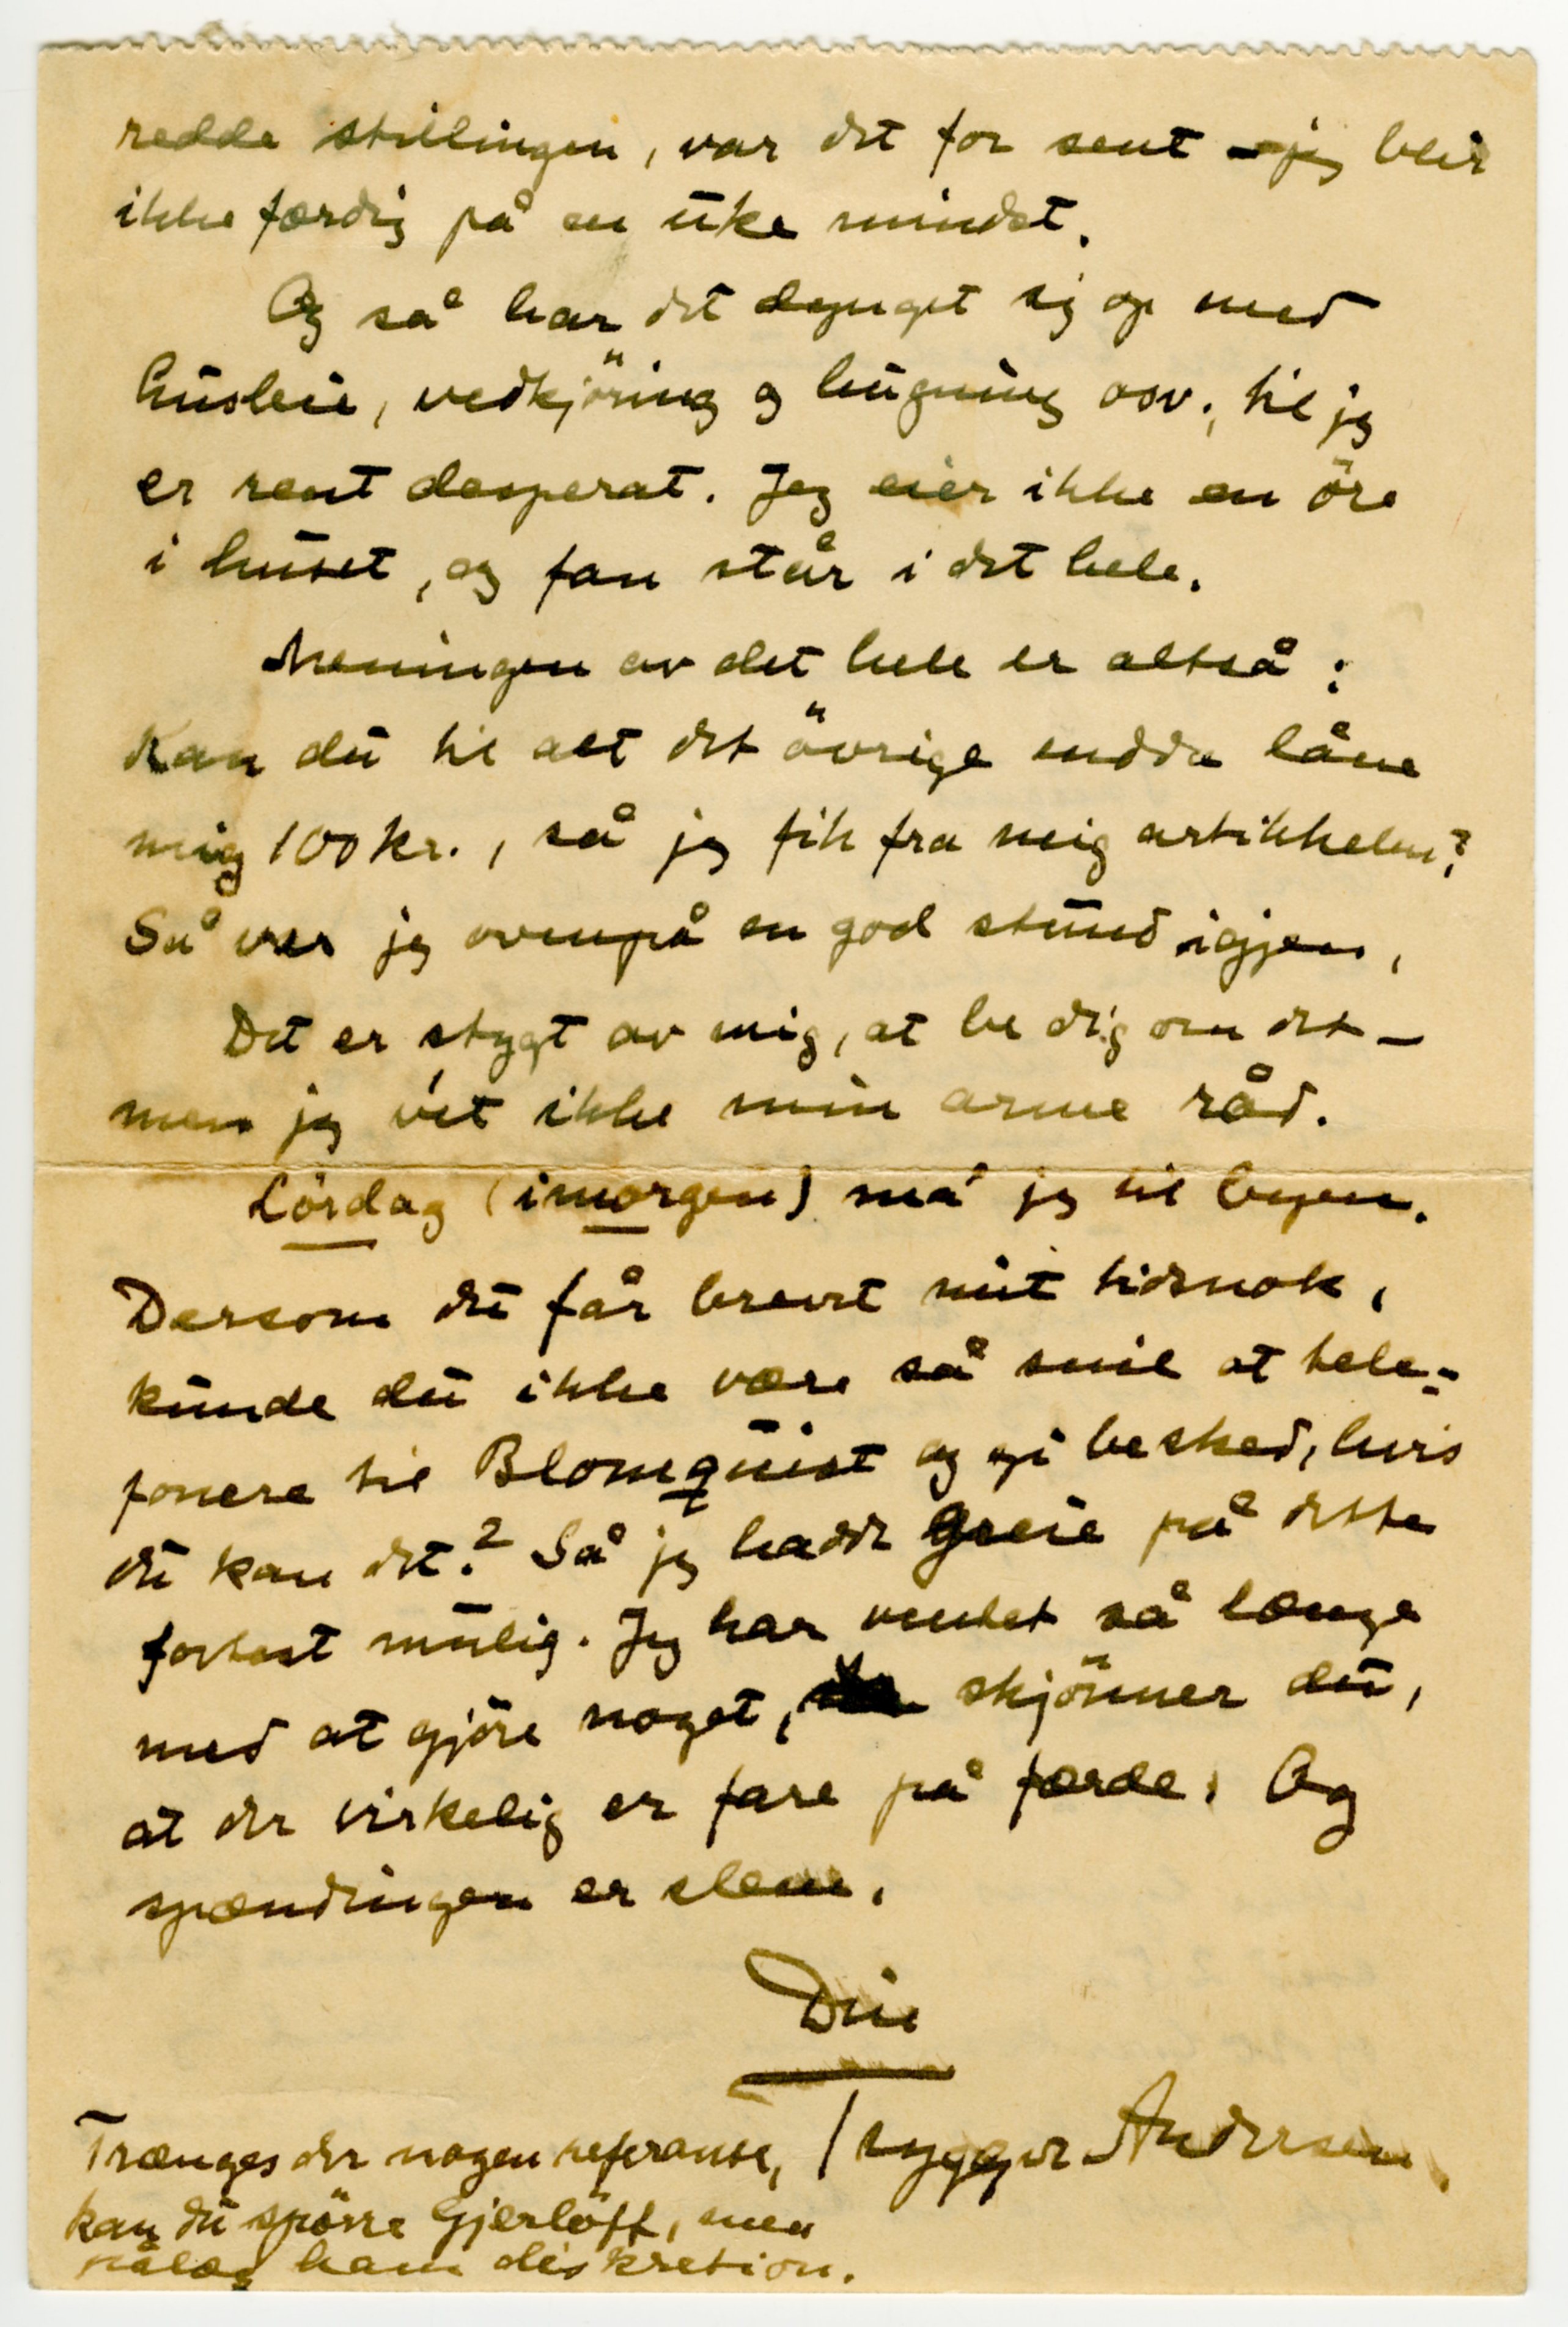 redde stillingen, var det for sent – jeg blir
ikke færdig på en uke mindst.
Og så har det dynget sig op med
husleie, vedkjöring og hugning osv., til jeg
er rent desperat. Jeg eier ikke en öre
i huset, og fan står i det hele.
Meningen av det hele er altså:
Kan du til alt det övrige endda låne
mig 100 kr., så jeg fik fra meig artikkelen?
Så var jeg ovenpå en god stund igjen,
Det er stygt av mig, at be dig om det –
men jeg vét ikke min arme råd.
Lördag (imorgen) må jeg til byen.
Dersom du får brevet mit tidsnok,
kunde du ikke være så snil at tele=
fonere til Blomquist og gi besked, hvis
du kan det? Så jeg hadde greie på dette
fortest mulig. Jeg har ventet så længe
med at gjöre noget, skjönner du,
at der virkelig er fare på færde. Og
spændingen er slem.
Din
Tryggve Andersen.
Trænges der nogen referanse,
kan du spörre Gjerlöff, men
pålæg ham diskretion.